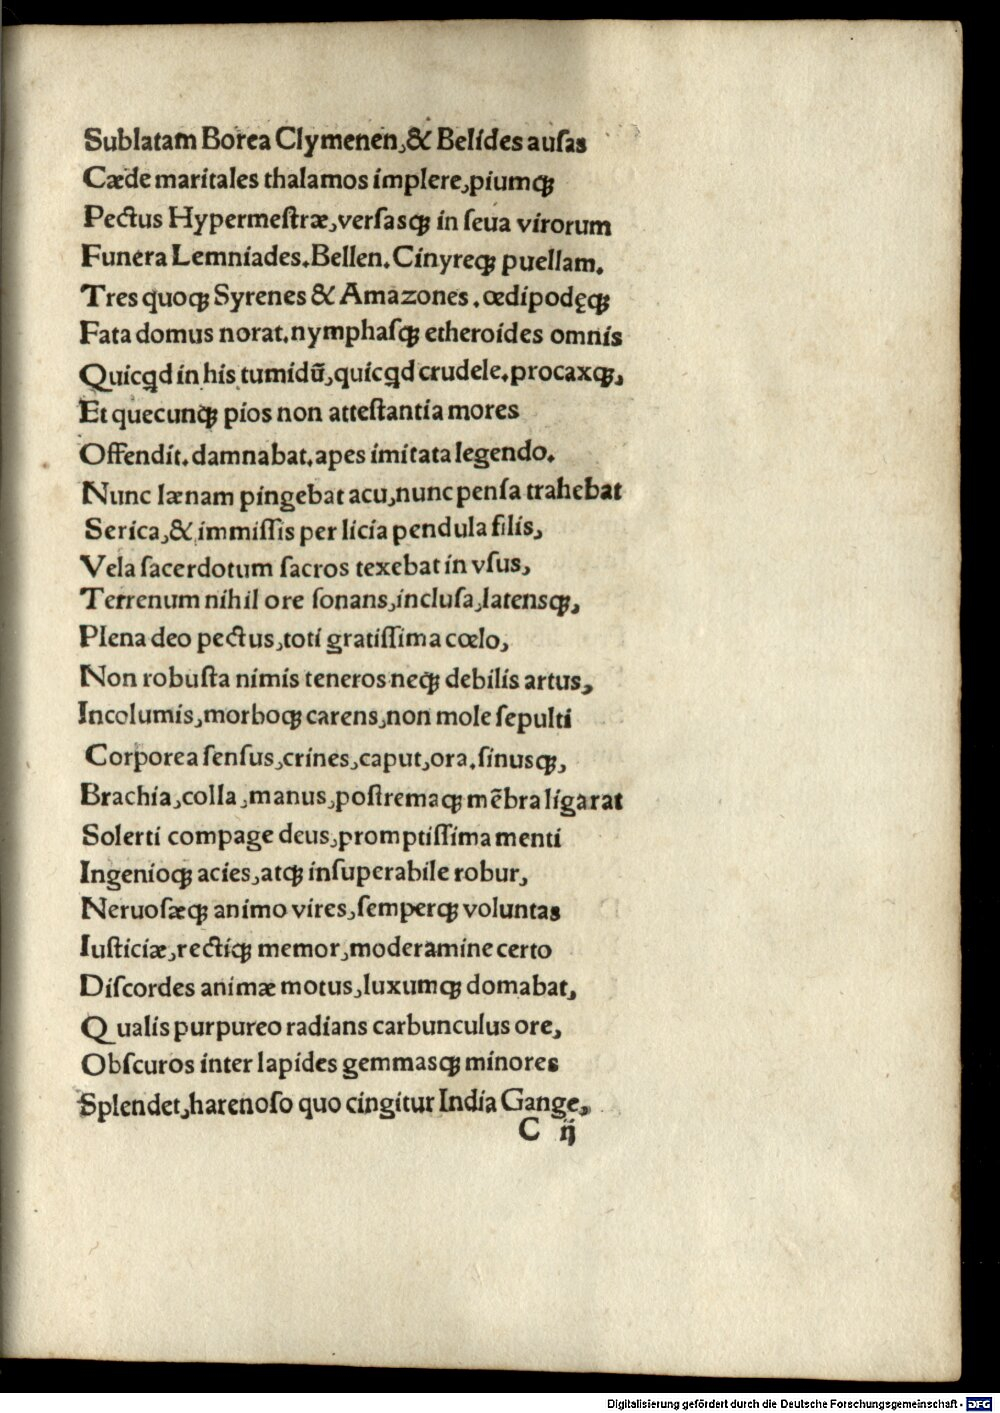 Sublatam Borea Clymenen,& Belides auſas
Cæde maritales thalamos implere,piumqꝫ
Pectus Hypermeſtræ,verſasqꝫ in ſeua virorum
Funera Lemniades.Bellen.Cinyreqꝫ puellam.
Tres quoqꝫ Syrenes & Amazones .œdipodęqꝫ
Fata domus norat.nymphaſqꝫ etheroides omnis
Quicꝗd in his tumidū,quicꝗd crudele.procaxqꝫ,
Et quecunqꝫ pios non atteſtantia mores
Offendit.damnabat.apes imitata legendo.
Nunc lænam pingebat acu,nunc penſa trahebat
Serica,& immiſſis per licia pendula filis,
Vela ſacerdotum ſacros texebat in vſus,
Terrenum nihil ore ſonans,incluſa,latensqꝫ,
Plena deo pectus,toti gratiſſima cœlo,
Non robuſta nimis teneros neqꝫ debilis artus,
Incolumis,morboqꝫ carens,non mole ſepulti
Corporea ſenſus,crines,caput,ora.ſinusqꝫ,
Brachia,colla,manus,poſtremaqꝫ mēbra ligarat
Solerti compage deus,promptiſſima menti
Ingenioqꝫ acies,atqꝫ inſuperabile robur,
Neruoſæqꝫ animo vires,ſemperqꝫ voluntas
Iuſticiæ,rectiqꝫ memor,moderamine certo
Diſcordes animæ motus,luxumqꝫ domabat,
Q ualis purpureo radians carbunculus ore,
Obſcuros inter lapides gemmasqꝫ minores
Splendet,harenoſo quo cingitur India Gange,
C ij
Digitalisierung gefördert durch die Deutsche Forschungsgemeinschaft - DFG